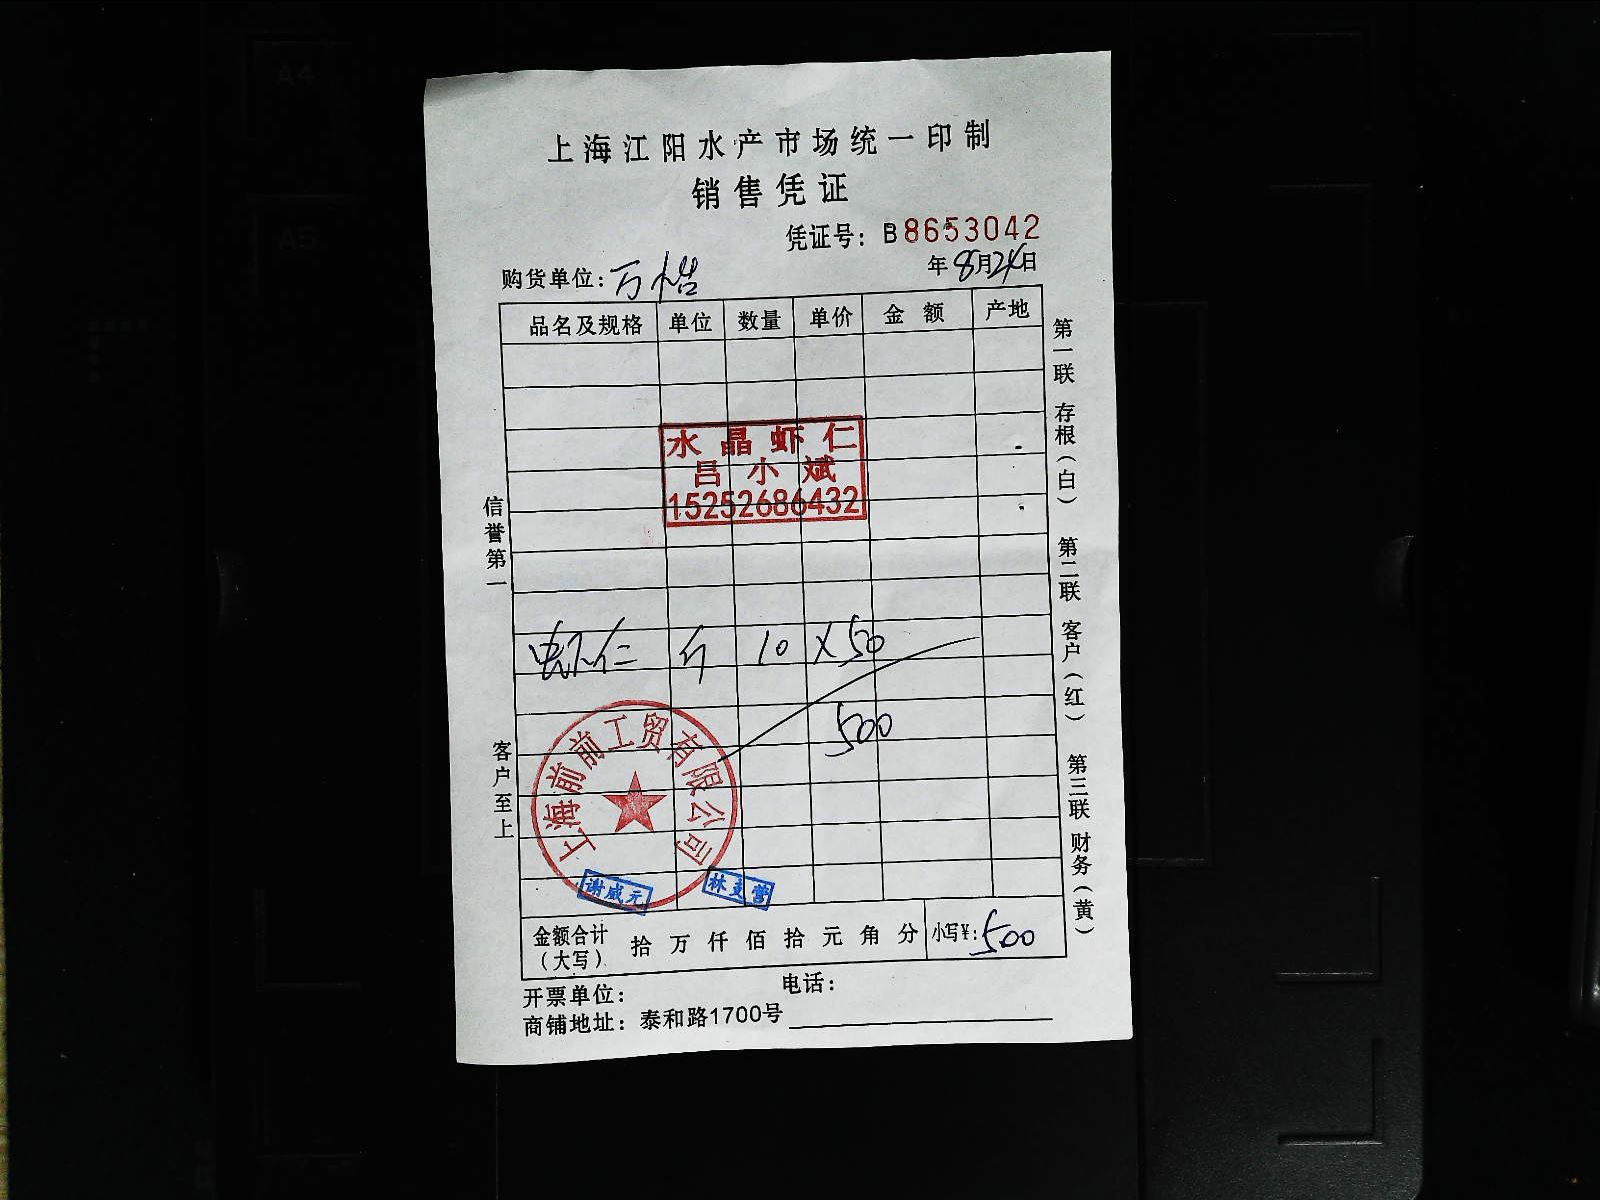 A4
A5
上海江阳水产市场统一印制
销售凭证
凭证号：B8653042
购货单位：万皓 年8月24日
品名及规格 单位 数量 单价 金额 产地
水晶虾仁
吕小斌
15252686432
虾仁 斤 10 × 50
500
上海前前工贸有限公司
谢威元 林支营
金额合计（大写） 拾万仟佰拾元角分 小写¥：500
开票单位： 电话：
商铺地址：泰和路1700号
信誉第一 客户至上
第一联 存根（白） 第二联 客户（红） 第三联 财务（黄）